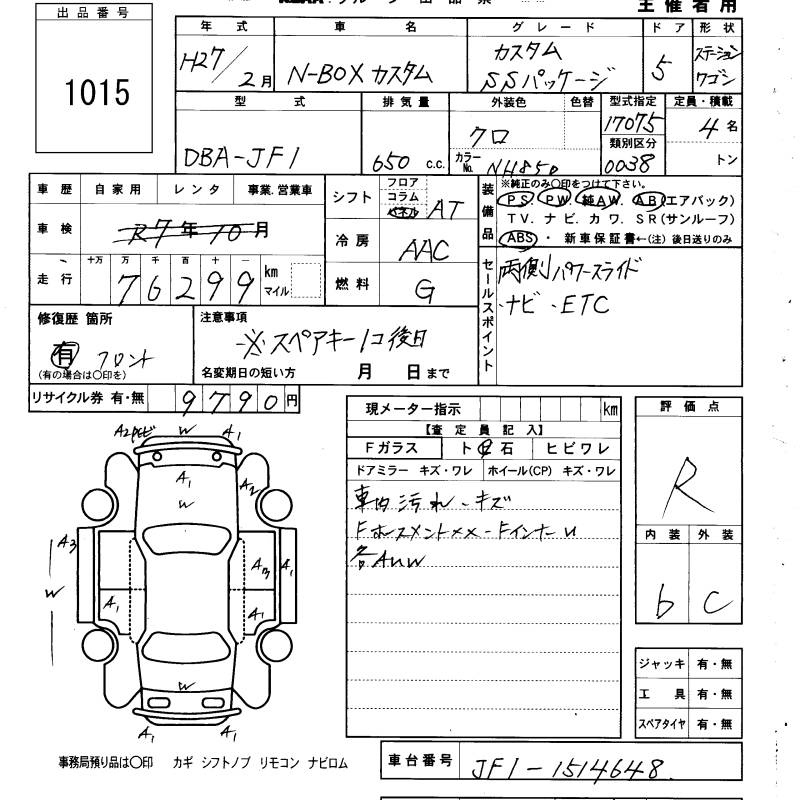 出品番号
1015
主催者用
年式 車名 グレード ドア 形状
H27/2月 N-BOX カスタム カスタム SSパッケージ 5 ステーションワゴン
型式 排気量 外装色 色替 型式指定 定員・積載
DBA-JF1 650 c.c. クロ カラーNo. NH850 17075 4名
類別区分
0038 トン
車歴 自家用 レンタ 事業.営業車
車検 R7年10月
走行 十万 万 千 百 十 一
76299 km マイル
シフト フロア コラム パネル AT
冷房 AAC
燃料 G
装備品 ※純正のみ〇印をつけて下さい。
PS PW 純AW. AB(エアバック)
TV. ナビ. カワ. SR(サンルーフ)
ABS ・ 新車保証書←(注)後日送りのみ
セールスポイント
両側パワースライド
・ナビ ・ETC
修復歴 箇所
有 フロント
(有の場合は〇印を)
注意事項
※スペアキー1コ後日
名変期日の短い方 月 日まで
リサイクル券 有・無 9790円
現メーター指示 km
【査定員記入】
Fガラス ト 石 ヒビワレ
ドアミラー キズ・ワレ ホイール(CP) キズ・ワレ
車内汚れ・キズ
各AUW
評価点
R
内装 外装
b C
ジャッキ 有・無
工具 有・無
スペアタイヤ 有・無
W A1
A1
W
A2
A3
W
A1
A1
A1
W
A1 A1
事務局預り品は〇印 カギ シフトノブ リモコン ナビロム
車台番号 JF1-1514648